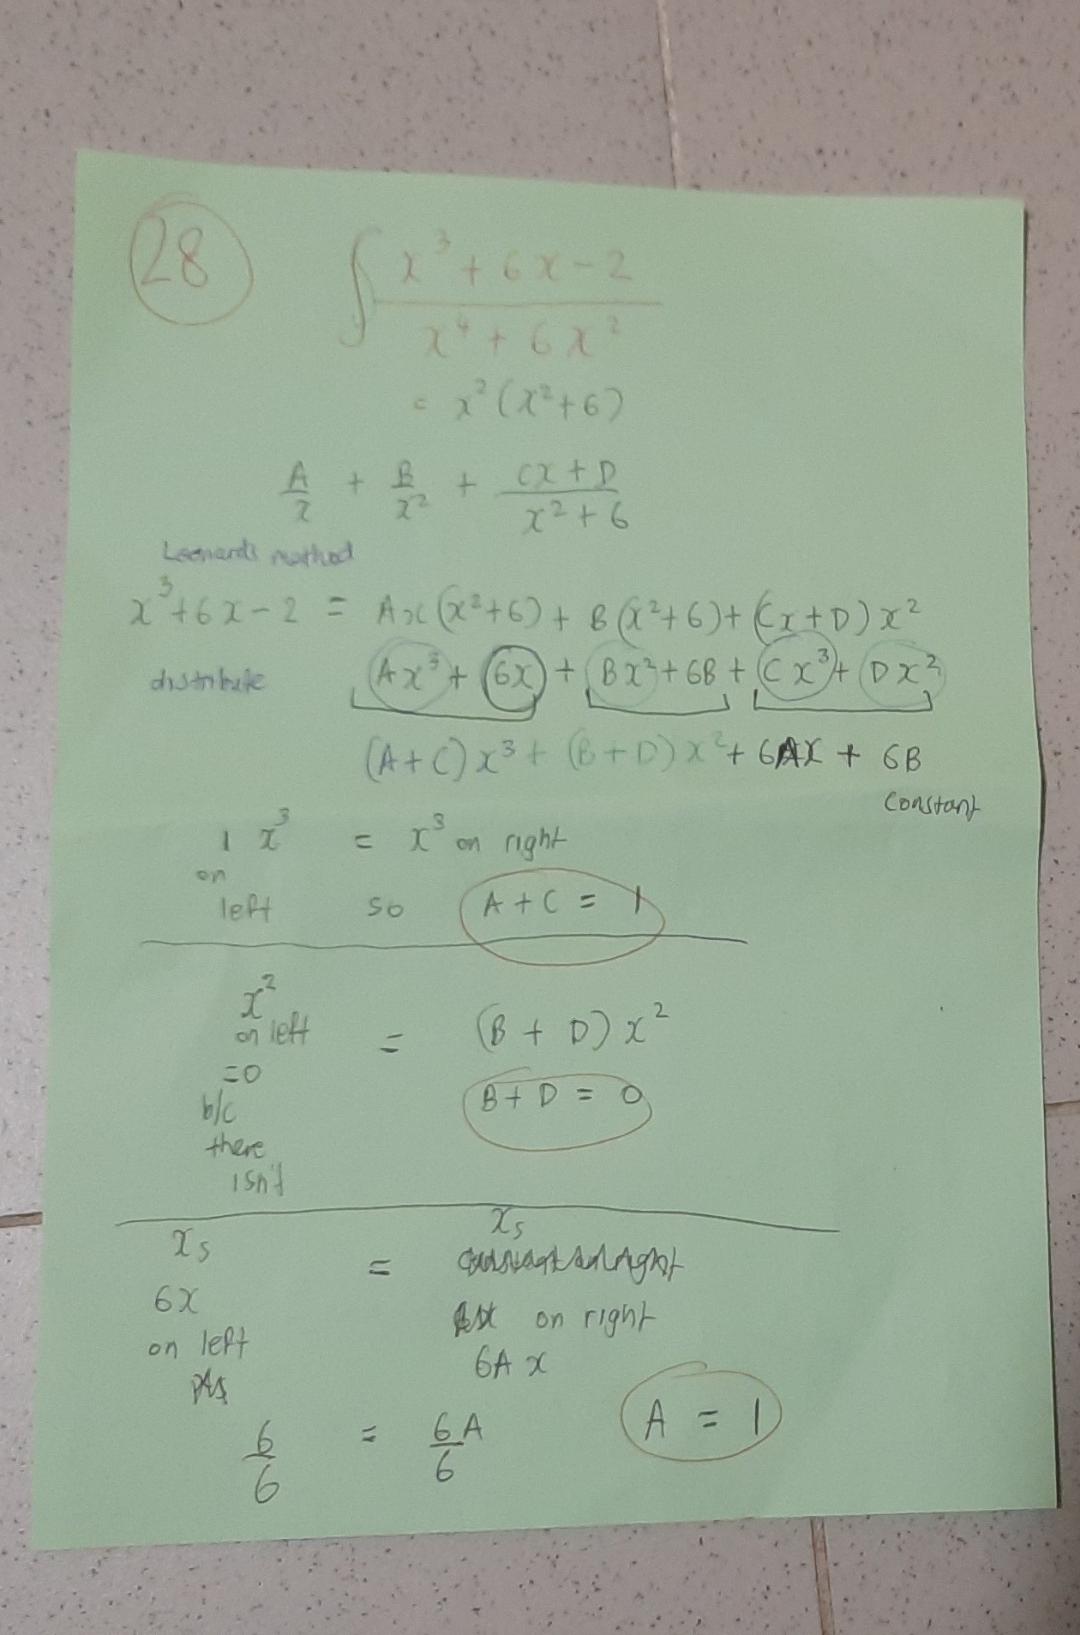 28
∫ x³ + 6x - 2
x⁴ + 6x²
= x² (x² + 6)
A/x + B/x² + Cx + D / x² + 6
Leonards method
x³ + 6x - 2 = Ax(x² + 6) + B(x² + 6) + (Cx + D) x²
distribute Ax³ + 6x + Bx² + 6B + Cx³ + Dx²
(A + C) x³ + (B + D) x² + 6Ax + 6B
constant
1 x³ = x³ on right
on
left so A + C = 1
x²
on left = (B + D) x²
=0
b/c B + D = 0
there
isn't
xs = xs
6x
on left on right
6A x
6/6 = 6A/6 A = 1